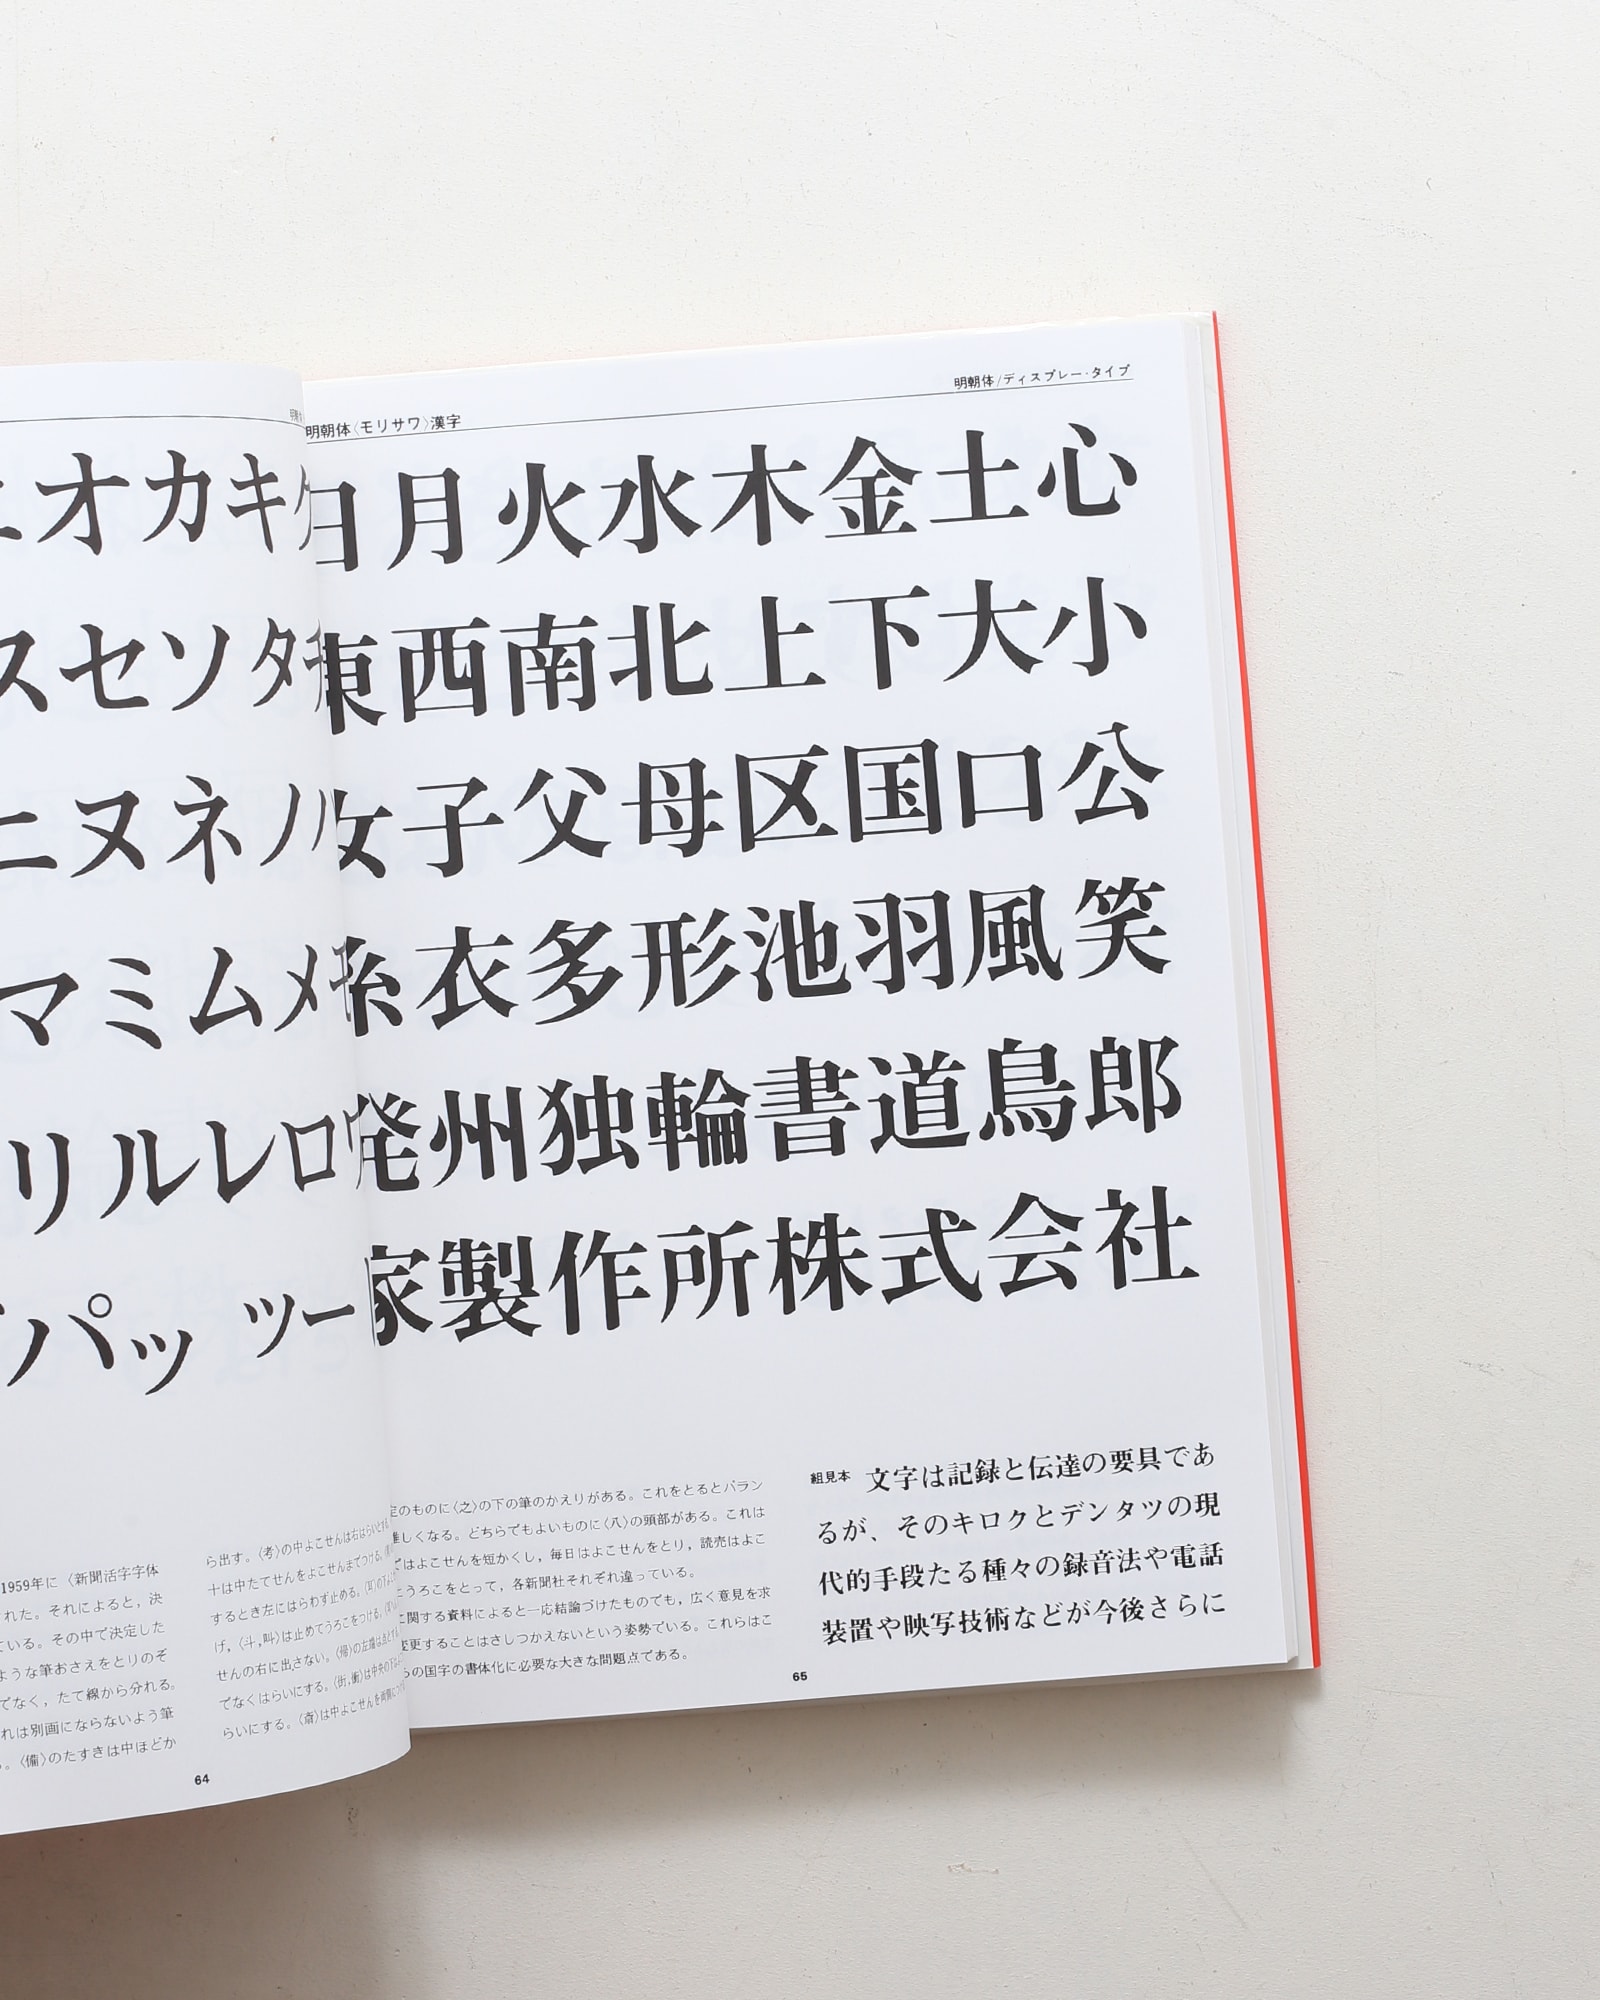 オカキ
スセソタ
ニヌネノ
マミムメ
リルレロ
パッ ツー
1959年に〈新聞活字字体
れた。それによると，決
ている。その中で決定した
ような筆おさえをとりのぞ
でなく，たて線から分れる。
れは別画にならないよう筆
〈備〉のたすきは中ほどか
ら出す。〈考〉の中よこせんは右はらいとする。
十は中たてせんをよこせんまでつける。
するとき左にはらわず止める。
げ，〈斗，叫〉は止めてうろこをつける。
せんの右に出さない。〈帰〉の左端は点とする
でなくはらいにする。〈街，衝〉は中央の下
らいにする。〈斎〉は中よこせんを両側に
64
明朝体/ディスプレー・タイプ
明朝体〈モリサワ〉漢字
日月火水木金土心
東西南北上下大小
女子父母区国口公
糸衣多形池羽風笑
発州独輪書道鳥郎
家製作所株式会社
定のものに〈之〉の下の筆のかえりがある。これをとるとバラン
難しくなる。どちらでもよいものに〈八〉の頭部がある。これは
ではよこせんを短かくし，毎日はよこせんをとり，読売はよこ
うろこをとって，各新聞社それぞれ違っている。
に関する資料によると一応結論づけたものでも，広く意見を求
変更することはさしつかえないという姿勢でいる。これらはこ
らの国字の書体化に必要な大きな問題点である。
組見本 文字は記録と伝達の要具であ
るが、そのキロクとデンタツの現
代的手段たる種々の録音法や電話
装置や映写技術などが今後さらに
65